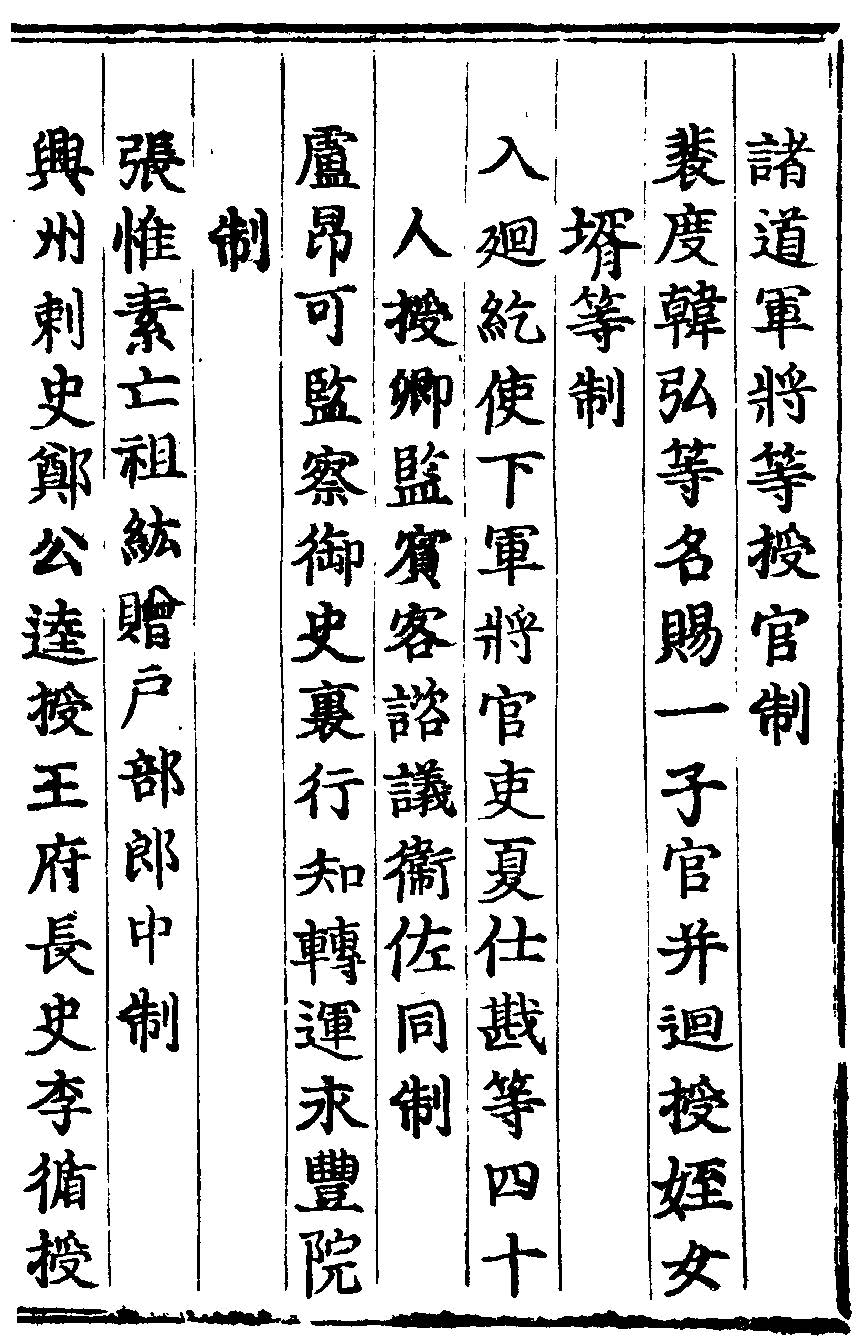 諸道軍將等授官制
裴度韓弘等各賜一子官并迴授姪女
壻等制
入廻紇使下軍將官吏夏仕戡等四十
人授卿監賓客諮議衞佐同制
盧昂可監察御史裏行知轉運永豐院
制
張惟素亡祖紘贈户部郎中制
興州刺史鄭公逵授王府長史李循授